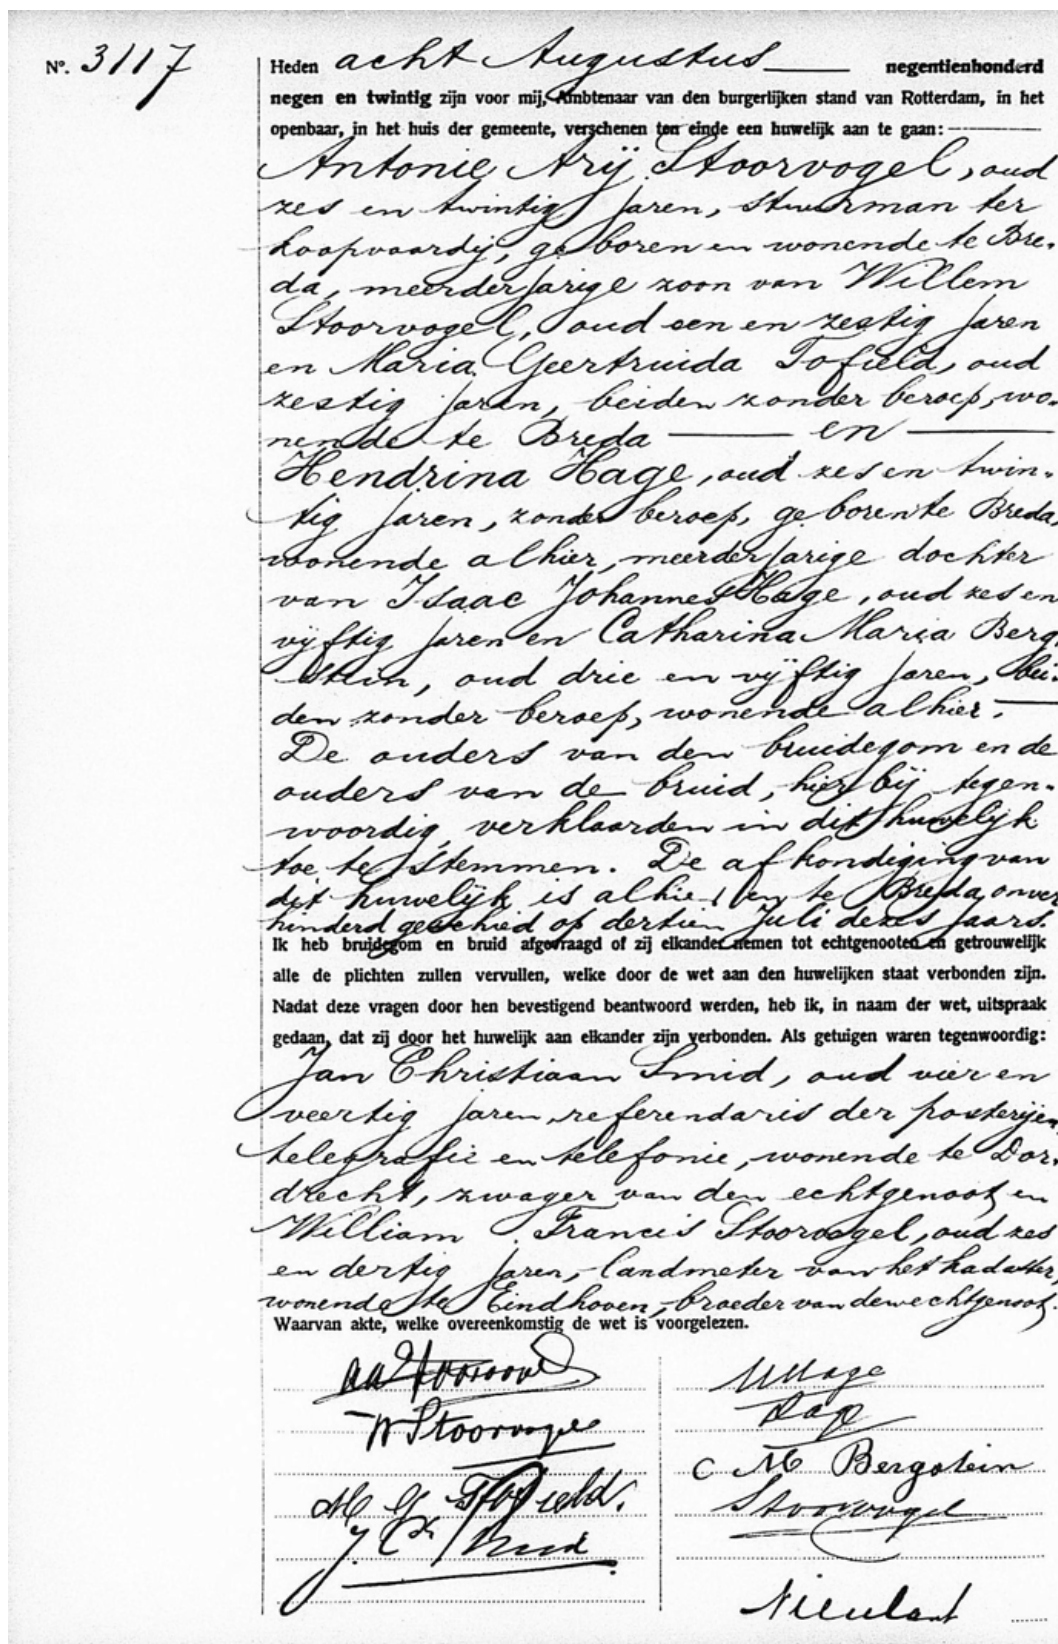 No. 3117
Heden acht Augustus negentienhonderd
negen en twintig zijn voor mij, Ambtenaar van den burgerlijken stand van Rotterdam, in het
openbaar, in het huis der gemeente, verschenen ten einde een huwelijk aan te gaan:
Antonie Arij Stoorvogel, oud
zes en twintig jaren, stuurman ter
koopvaardij, geboren en wonende te Bre-
da, meerderjarige zoon van Willem
Stoorvogel, oud een en zestig jaren
en Maria Geertruida Tofield, oud
zestig jaren, beiden zonder beroep, wo-
nende te Breda — en —
Hendrina Hage, oud zes en twin-
tig jaren, zonder beroep, geboren te Breda,
wonende alhier, meerderjarige dochter
van Isaac Johannes Hage, oud zes en
vijftig jaren en Catharina Maria Berg-
stein, oud drie en vijftig jaren, bei-
den zonder beroep, wonende alhier. —
De ouders van den bruidegom en de
ouders van de bruid, hierbij tegen-
woordig, verklaarden in dit huwelijk
toe te stemmen. De afkondiging van
dit huwelijk is alhier en te Breda onver
hinderd geschied op dertien Juli dezes jaars.
Ik heb bruidegom en bruid afgevraagd of zij elkander nemen tot echtgenooten en getrouwelijk
alle de plichten zullen vervullen, welke door de wet aan den huwelijken staat verbonden zijn.
Nadat deze vragen door hen bevestigend beantwoord werden, heb ik, in naam der wet, uitspraak
gedaan, dat zij door het huwelijk aan elkander zijn verbonden. Als getuigen waren tegenwoordig:
Jan Christiaan Smid, oud vier en
veertig jaren, referendaris der posterijen,
telegrafie en telefonie, wonende te Dor-
drecht, zwager van den echtgenoot, en
William Francis Stoorvogel, oud zes
en dertig jaren, landmeter van het kadaster,
wonende te Eindhoven, broeder van dewechtgenoot.
Waarvan akte, welke overeenkomstig de wet is voorgelezen.
AA Stoorvogel
W Stoorvogel
M G Tofield.
J Chr Smid
HHage
Hage
C M Bergstein
Stoorvogel